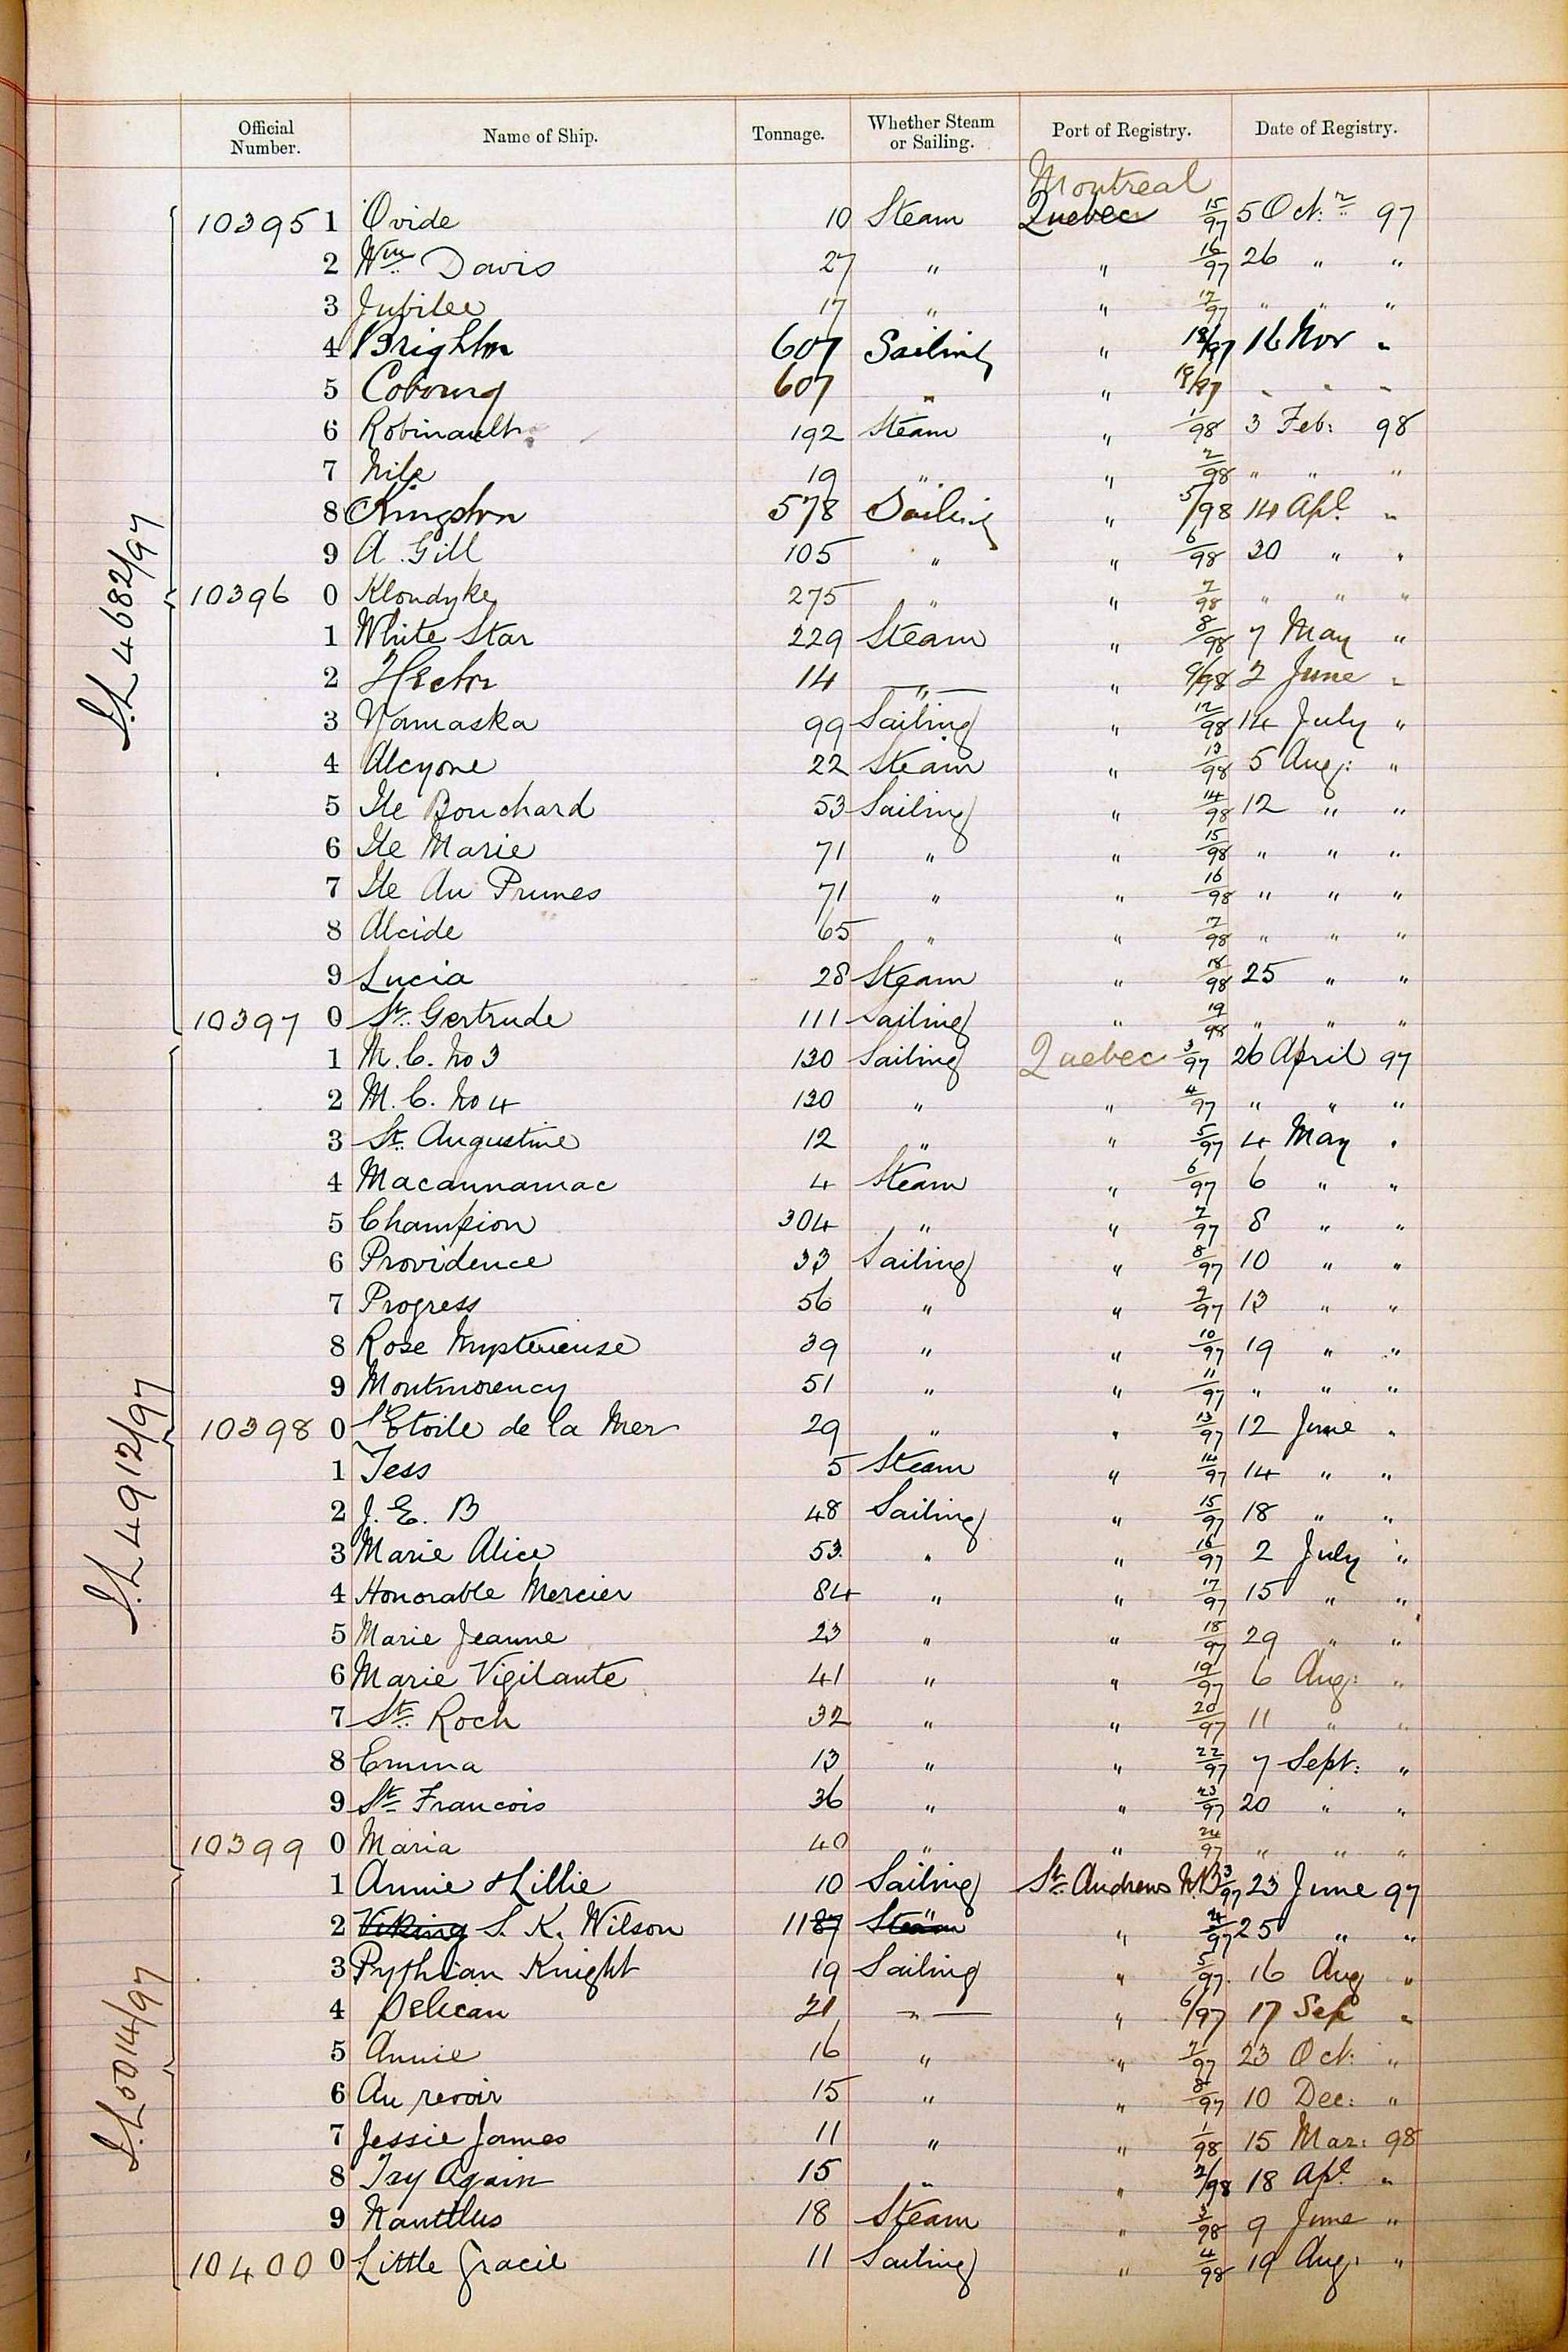 Official Number. Name of Ship. Tonnage. Whether Steam or Sailing. Port of Registry. Date of Registry.
Montreal
10395 1 Ovide 10 Steam Quebec 15/97 5 Oct:r 97
2 Wm Davis 27 " " 16/97 26 " "
3 Jubilee 17 " " 17/97 " " "
4 Brighton 607 Sailing " 18/97 16 Nov "
5 Cobourg 607 " " 19/97 " " "
6 Robinault 192 Steam " 1/98 3 Feb: 98
7 Nile 19 " " 2/98 " " "
8 Kingston 578 Sailing " 5/98 14 Apl "
9 A. Gill 105 " " 6/98 20 " "
10396 0 Klondyke 275 " " 7/98 " " "
1 White Star 229 Steam " 8/98 7 May "
2 Hector 14 " " 9/98 2 June "
3 Yamaska 99 Sailing " 12/98 14 July "
4 Alcyone 22 Steam " 13/98 5 Aug: "
5 Ile Bouchard 53 Sailing " 14/98 12 " "
6 Ile Marie 71 " " 15/98 " " "
7 Ile Au Prunes 71 " " 16/98 " " "
8 Alcide 65 " " 17/98 " " "
9 Lucia 28 Steam " 18/98 25 " "
10397 0 St. Gertrude 111 Sailing " 19/98 " " "
S.L 4682/97
1 M.C. No 3 130 Sailing Quebec 3/97 26 April 97
2 M.C. No 4 130 " " 4/97 " " "
3 St. Augustine 12 " " 5/97 4 May "
4 Macannamac 4 Steam " 6/97 6 " "
5 Champion 304 " " 7/97 8 " "
6 Providence 33 Sailing " 8/97 10 " "
7 Progress 56 " " 9/97 13 " "
8 Rose Mysterieuse 39 " " 10/97 19 " "
9 Montmorency 51 " " 11/97 " " "
10398 0 l'Etoile de la Mer 29 " " 13/97 12 June "
1 Tess 5 Steam " 14/97 14 " "
2 J. E. B 48 Sailing " 15/97 18 " "
3 Marie Alice 53 " " 16/97 2 July "
4 Honorable Mercier 84 " " 17/97 15 " "
5 Marie Jeanne 23 " " 18/97 29 " "
6 Marie Vigilante 41 " " 19/97 6 Aug: "
7 St. Roch 32 " " 20/97 11 " "
8 Emma 13 " " 22/97 7 Sept: "
9 St. Francois 36 " " 23/97 20 " "
10399 0 Maria 40 " " 24/97 " " "
S.L 4912/97
1 Annie & Lillie 10 Sailing St. Andrews N.B 3/97 23 June 97
2 Viking S. K. Wilson 11 87 Steam " " 4/97 25 " "
3 Pythian Knight 19 Sailing " 5/97 16 Aug "
4 Pelican 21 " " 6/97 17 Sep "
5 Annie 16 " " 7/97 23 Oct: "
6 Au revoir 15 " " 8/97 10 Dec: "
7 Jessie James 11 " " 1/98 15 Mar: 98
8 Try Again 15 " " 2/98 18 Apl "
9 Nautilus 18 Steam " 3/98 9 June "
10400 0 Little Gracie 11 Sailing " 4/98 19 Aug: "
S.L 5014/97